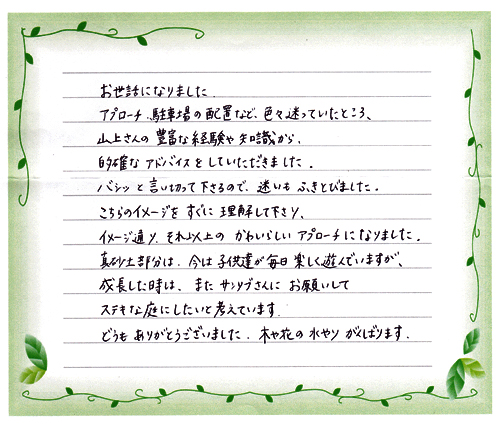 お世話になりました.
アプローチ、駐車場の配置など、色々迷っていたところ、
山上さんの豊富な経験や知識から、
的確なアドバイスをしていただきました.
バシッと言い切って下さるので、迷いもふきとびました.
こちらのイメージをすぐに理解して下さり、
イメージ通り、それ以上のかわいらしいアプローチになりました.
真砂土部分は、今は子供達が毎日楽しく遊んでいますが、
成長した時は、またサンリブさんにお願いして
ステキな庭にしたいと考えています.
どうもありがとうございました. 木や花の水やりがんばります.